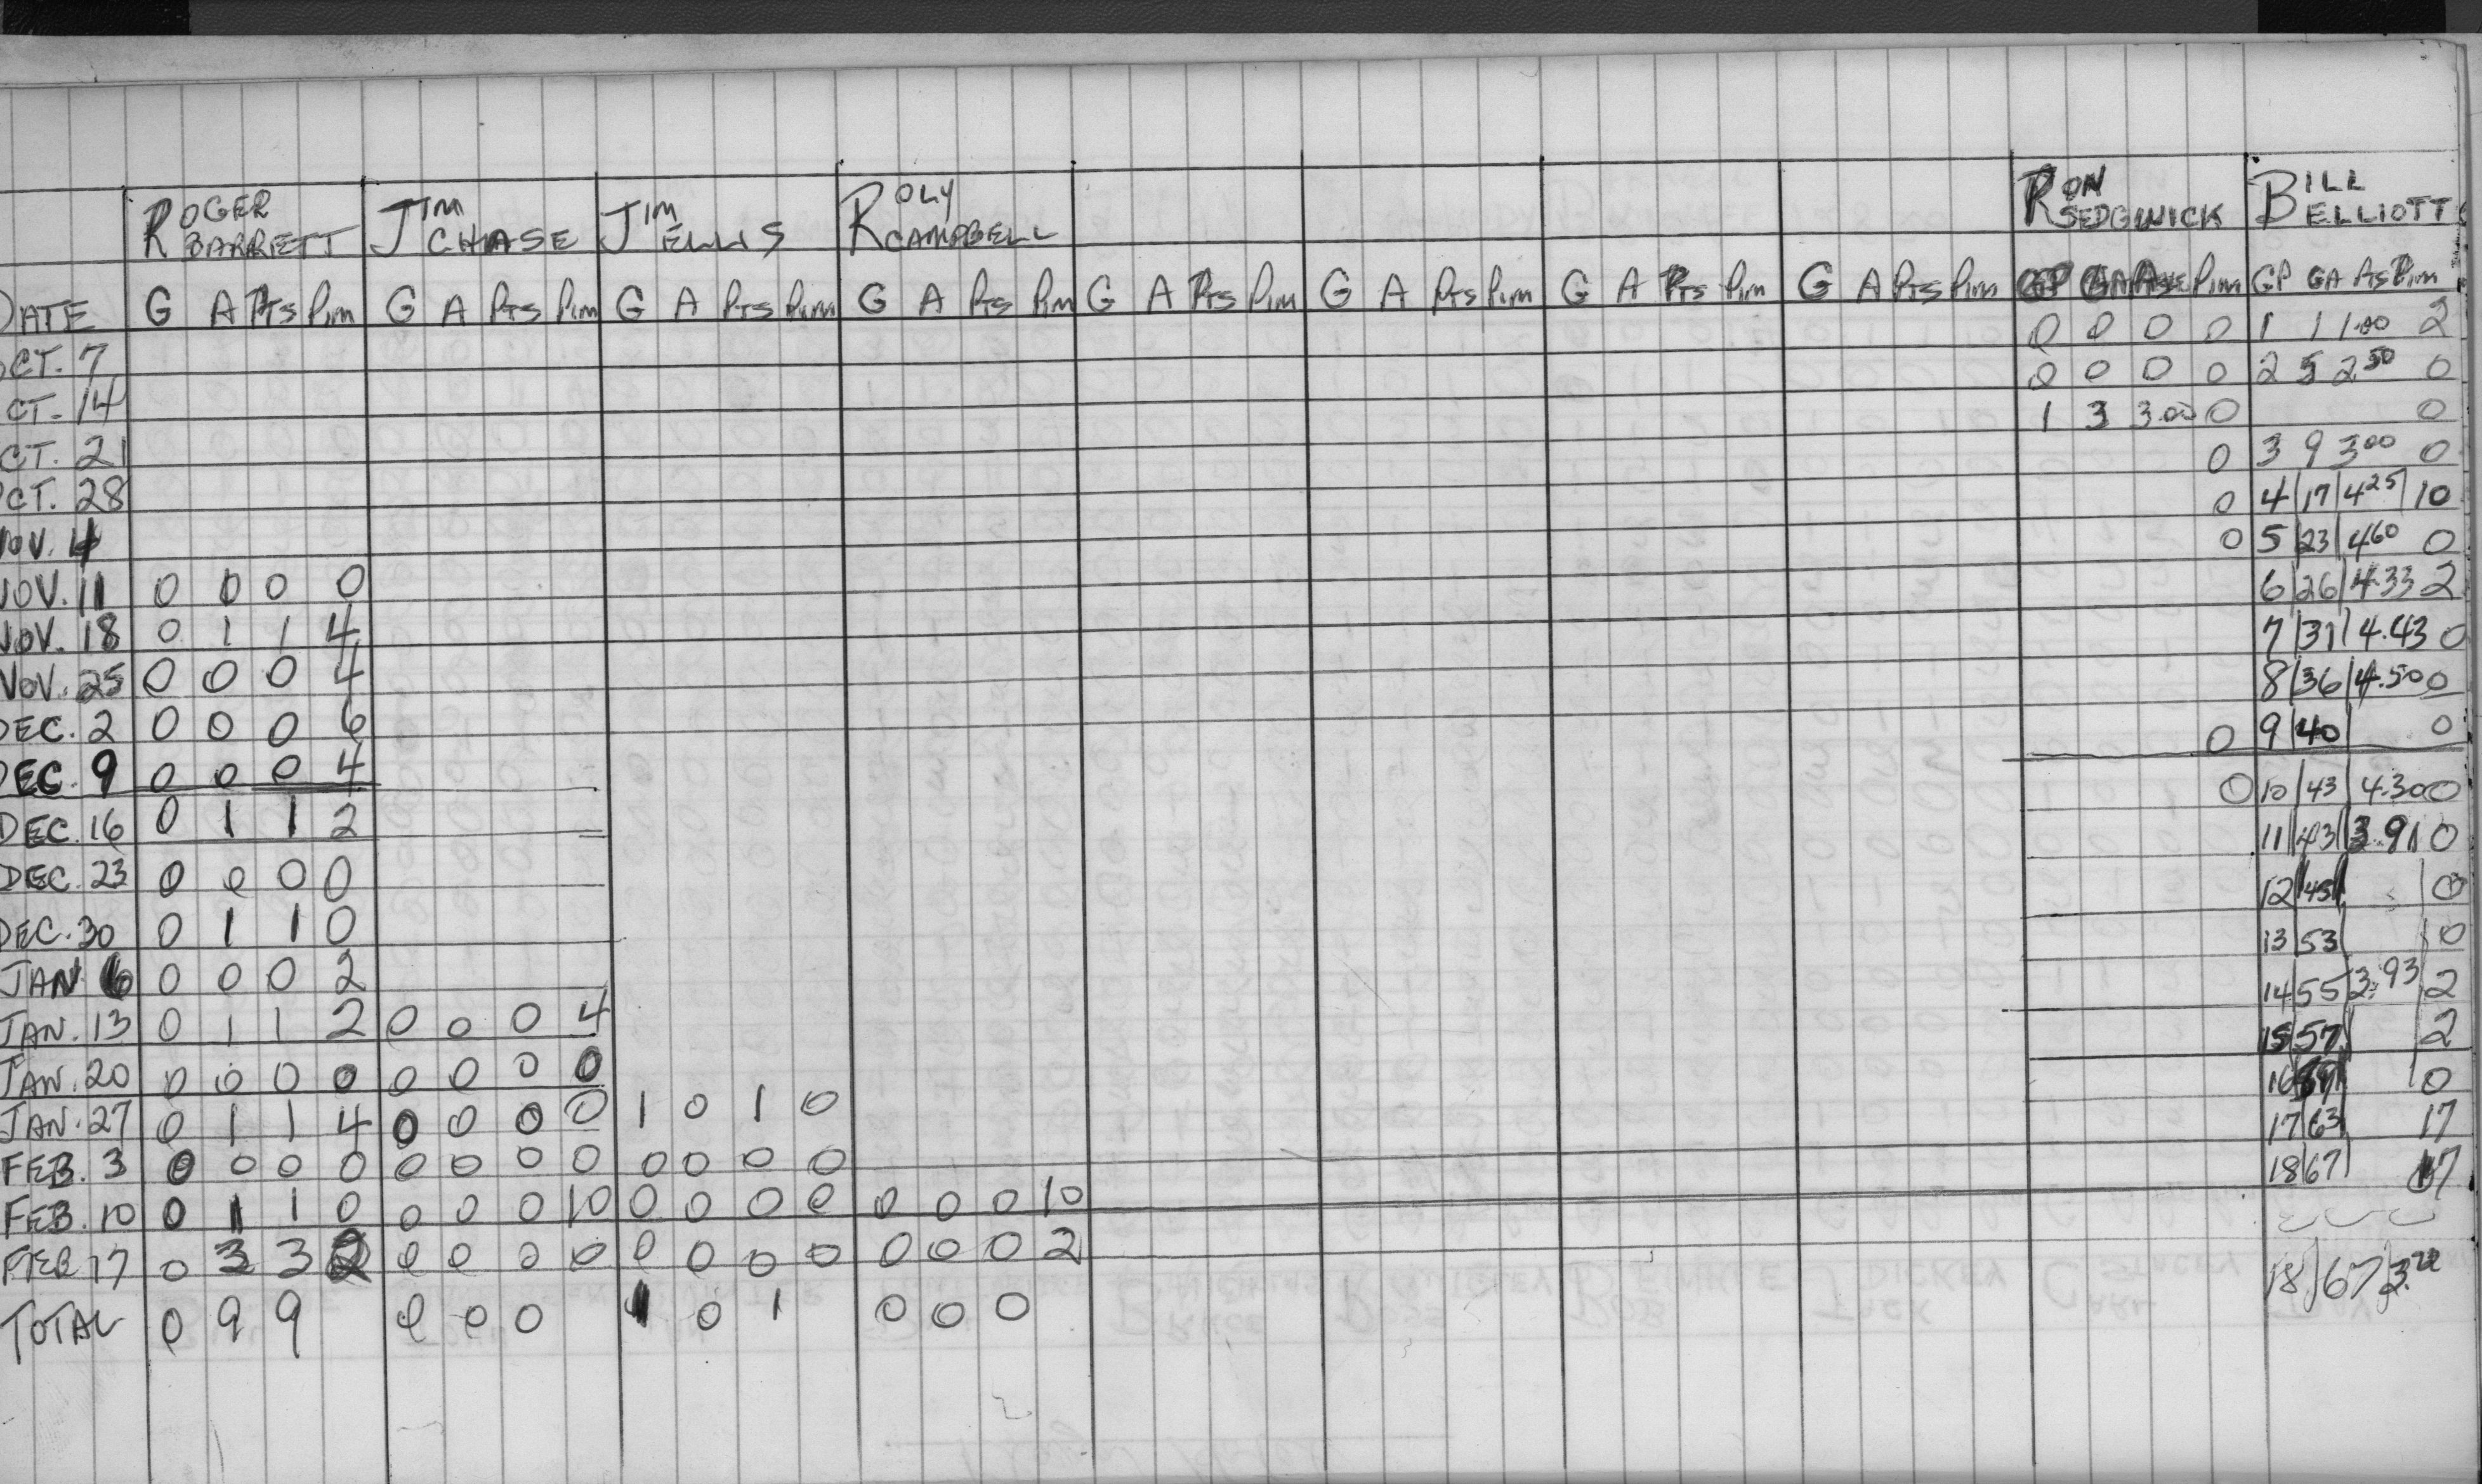 ROGER BARRETT JIM CHASE JIM ELLIS ROLY CAMPBELL RON SEDGWICK BILL ELLIOTT
DATE G A Pts Pim G A Pts Pim G A Pts Pim G A Pts Pim G A Pts Pim G A Pts Pim G A Pts Pim G A Pts Pim GP GA Ave Pim GP GA Pts Pim
OCT. 7 0 0 0 0 1 1 1.00 2
OCT. 14 0 0 0 0 2 5 2.50 0
OCT. 21 1 3 3.00 0 0
OCT. 28 0 3 9 3.00 0
NOV. 4 0 4 17 4.25 10
NOV. 11 0 0 0 0 0 5 23 4.60 0
NOV. 18 0 1 1 4 6 26 4.33 2
NOV. 25 0 0 0 4 7 31 4.43 0
DEC. 2 0 0 0 6 8 36 4.50 0
DEC. 9 0 0 0 4 0 9 40 0
DEC. 16 0 1 1 2 0 10 43 4.30 0
DEC. 23 0 0 0 0 11 43 3.91 0
DEC. 30 0 1 1 0 12 45 0
JAN 6 0 0 0 2 13 53 0
JAN. 13 0 1 1 2 0 0 0 4 14 55 3.93 2
JAN. 20 0 0 0 0 0 0 0 0 15 57 2
JAN. 27 0 1 1 4 0 0 0 0 1 0 1 0 16 0
FEB. 3 0 0 0 0 0 0 0 0 0 0 0 0 17 63 17
FEB. 10 0 1 1 0 0 0 0 10 0 0 0 0 0 0 0 10 18 67 17
FEB 17 0 3 3 2 0 0 0 0 0 0 0 0 0 0 0 2
TOTAL 0 9 9 0 0 0 1 0 1 0 0 0 18 67 3.72